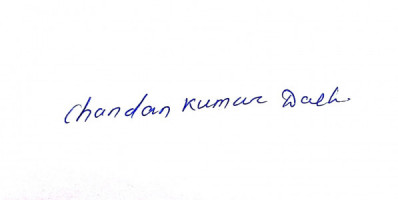 Chandan Kumar Dash.